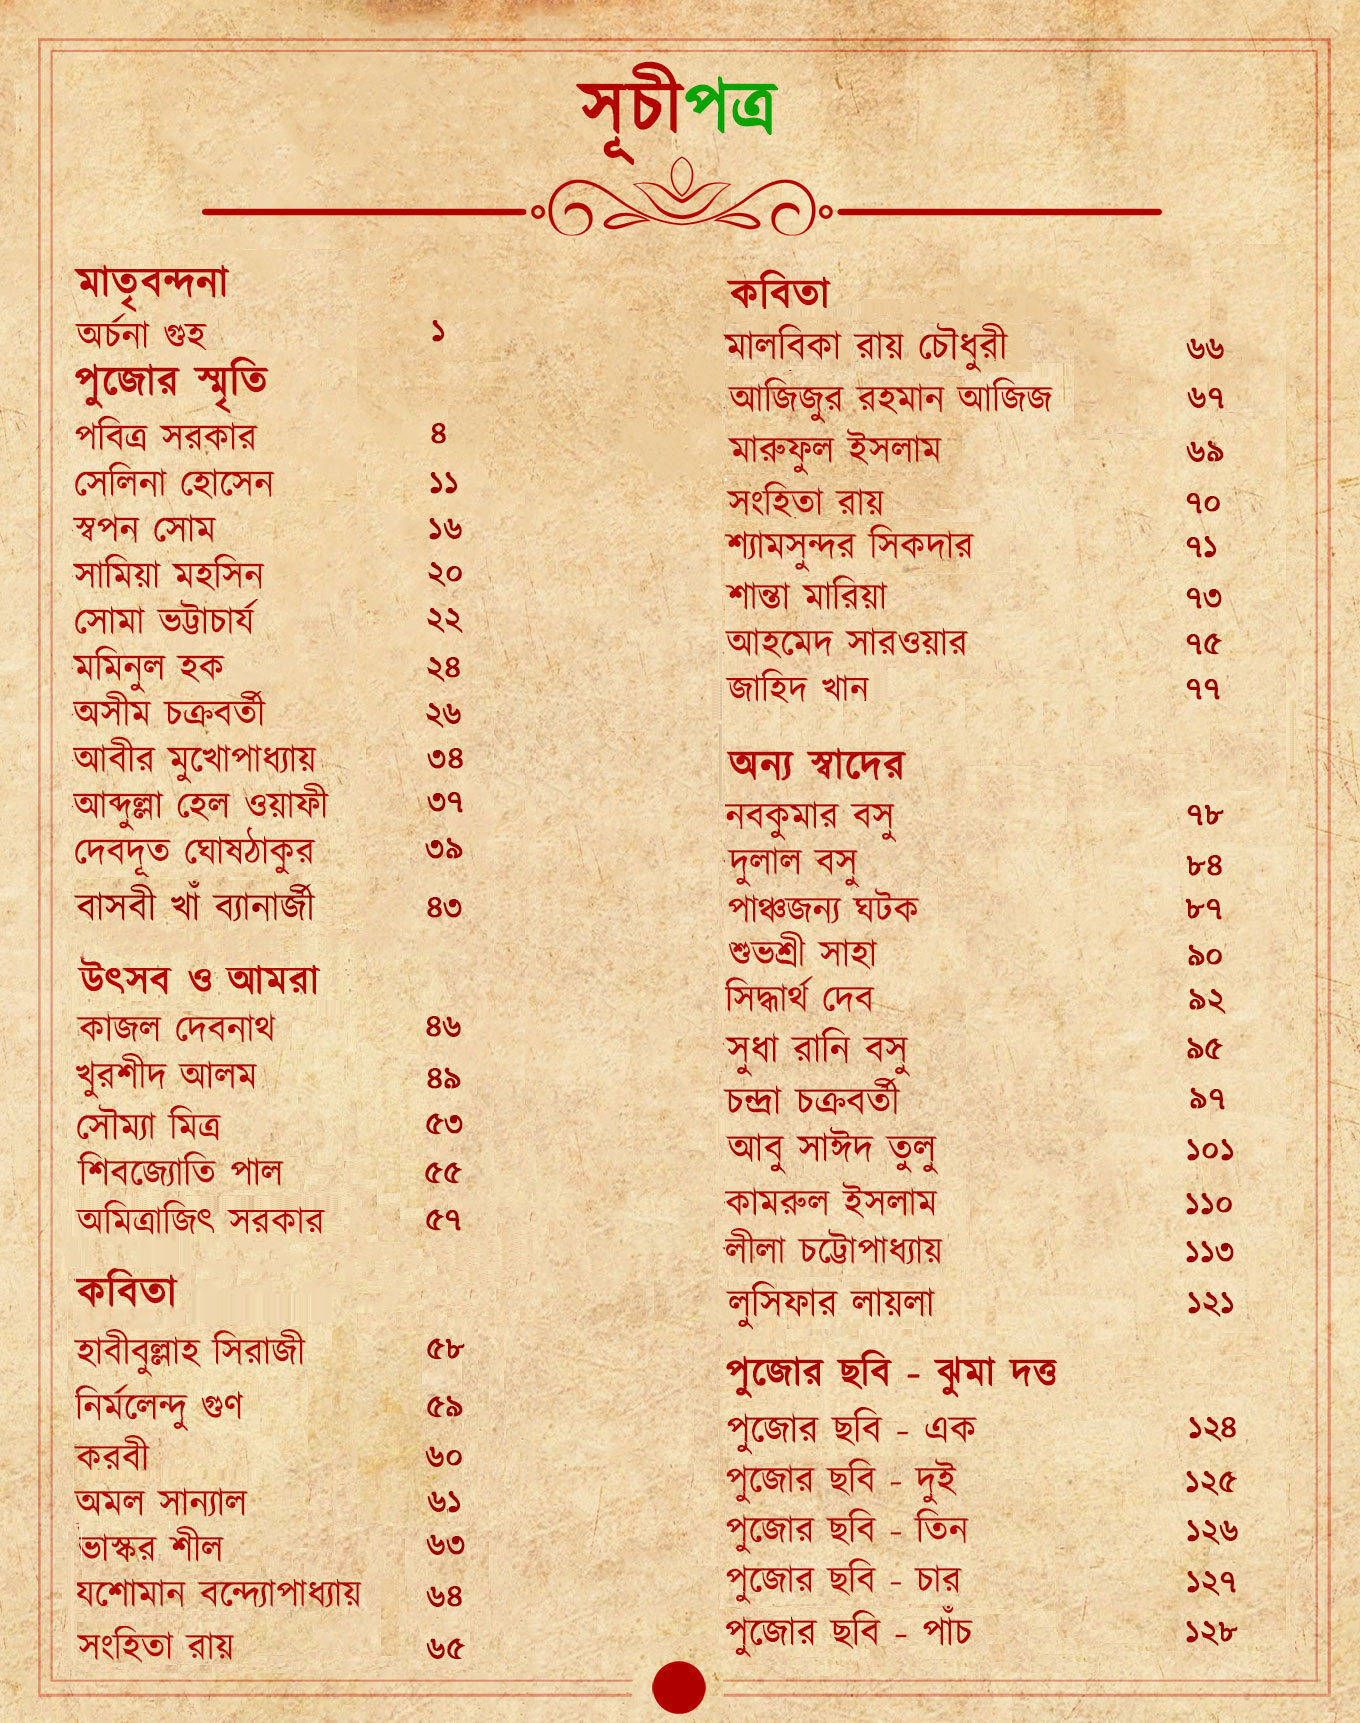 সূচীপত্র
মাতৃবন্দনা
অর্চনা গুহ ১
পুজোর স্মৃতি
পবিত্র সরকার ৪
সেলিনা হোসেন ১১
স্বপন সোম ১৬
সামিয়া মহসিন ২০
সোমা ভট্টাচার্য ২২
মমিনুল হক ২৪
অসীম চক্রবর্তী ২৬
আবীর মুখোপাধ্যায় ৩৪
আব্দুল্লা হেল ওয়াফী ৩৭
দেবদূত ঘোষঠাকুর ৩৯
বাসবী খাঁ ব্যানার্জী ৪৩
উৎসব ও আমরা
কাজল দেবনাথ ৪৬
খুরশীদ আলম ৪৯
সৌম্যা মিত্র ৫৩
শিবজ্যোতি পাল ৫৫
অমিত্রাজিৎ সরকার ৫৭
কবিতা
হাবীবুল্লাহ সিরাজী ৫৮
নির্মলেন্দু গুণ ৫৯
করবী ৬০
অমল সান্যাল ৬১
ভাস্কর শীল ৬৩
যশোমান বন্দ্যোপাধ্যায় ৬৪
সংহিতা রায় ৬৫
কবিতা
মালবিকা রায় চৌধুরী ৬৬
আজিজুর রহমান আজিজ ৬৭
মারুফুল ইসলাম ৬৯
সংহিতা রায় ৭০
শ্যামসুন্দর সিকদার ৭১
শান্তা মারিয়া ৭৩
আহমেদ সারওয়ার ৭৫
জাহিদ খান ৭৭
অন্য স্বাদের
নবকুমার বসু ৭৮
দুলাল বসু ৮৪
পাঞ্চজন্য ঘটক ৮৭
শুভশ্রী সাহা ৯০
সিদ্ধার্থ দেব ৯২
সুধা রানি বসু ৯৫
চন্দ্রা চক্রবর্তী ৯৭
আবু সাঈদ তুলু ১০১
কামরুল ইসলাম ১১০
লীলা চট্টোপাধ্যায় ১১৩
লুসিফার লায়লা ১২১
পুজোর ছবি - ঝুমা দত্ত
পুজোর ছবি - এক ১২৪
পুজোর ছবি - দুই ১২৫
পুজোর ছবি - তিন ১২৬
পুজোর ছবি - চার ১২৭
পুজোর ছবি - পাঁচ ১২৮